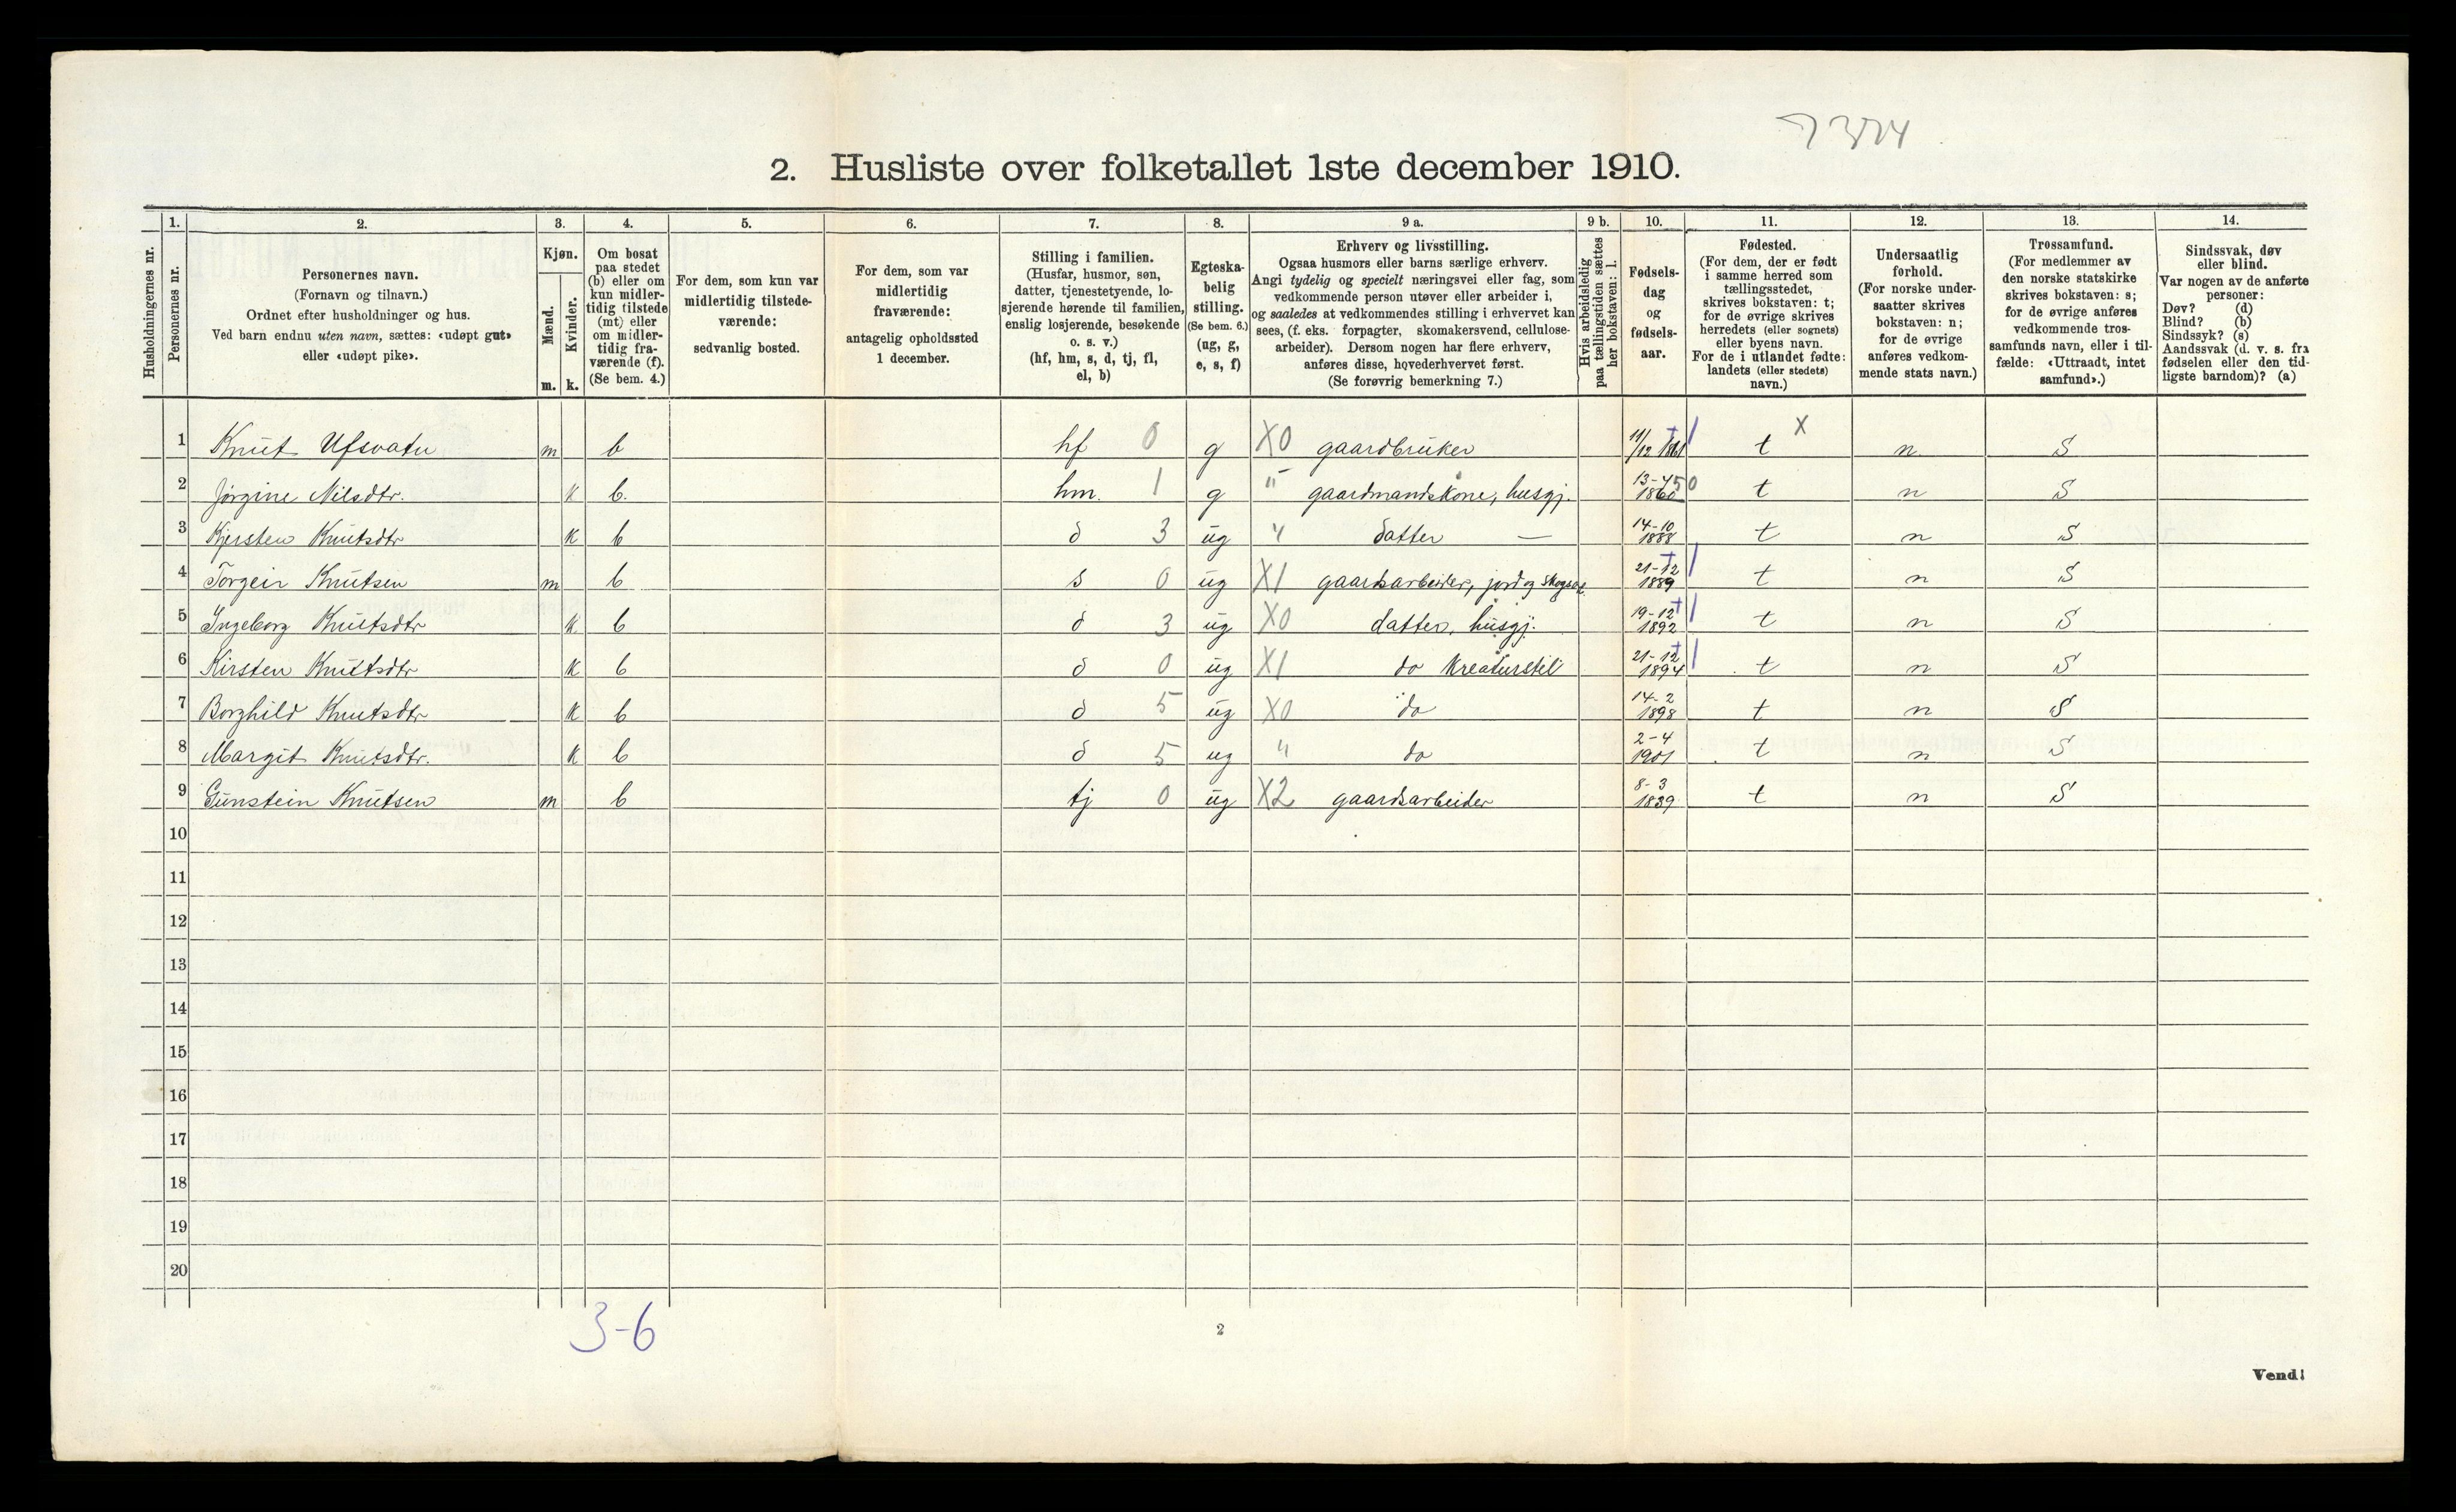 2. Husliste over folketallet 1ste december 1910.
Husholdningernes nr.
1. 2. 3. 4. 5. 6. 7. 8. 9 a. 9 b. 10. 11. 12. 13. 14.
Personernes nr.
Personernes navn.
(Fornavn og tilnavn.)
Ordnet efter husholdninger og hus.
Ved barn endnu uten navn, sættes: «udøpt gut»
eller «udøpt pike».
Kjøn.
Mænd.
Kvinder.
m. k.
Om bosat
paa stedet
(b) eller om
kun midler-
tidig tilstede
(mt) eller
om midler-
tidig fra-
værende (f).
(Se bem. 4.)
For dem, som kun var
midlertidig tilstede-
værende:
sedvanlig bosted.
For dem, som var
midlertidig
fraværende:
antagelig opholdssted
1 december.
Stilling i familien.
(Husfar, husmor, søn,
datter, tjenestetyende, lo-
sjerende hørende til familien,
enslig losjerende, besøkende
o. s. v.)
(hf, hm, s, d, tj, fl,
el, b)
Egteska-
belig
stilling.
(Se bem. 6.)
(ug, g,
e, s, f)
Erhverv og livsstilling.
Ogsaa husmors eller barns særlige erhverv.
Angi tydelig og specielt næringsvei eller fag, som
vedkommende person utøver eller arbeider i,
og saaledes at vedkommendes stilling i erhvervet kan
sees, (f. eks. forpagter, skomakersvend, cellulose-
arbeider). Dersom nogen har flere erhverv,
anføres disse, hovederhvervet først.
(Se forøvrig bemerkning 7.)
Hvis arbeidsledig
paa tællingstiden sættes
her bokstaven: l.
Fødsels-
dag
og
fødsels-
aar.
Fødested.
(For dem, der er født
i samme herred som
tællingsstedet,
skrives bokstaven: t;
for de øvrige skrives
herredets (eller sognets)
eller byens navn.
For de i utlandet fødte:
landets (eller stedets)
navn.)
Undersaatlig
forhold.
(For norske under-
saatter skrives
bokstaven: n;
for de øvrige
anføres vedkom-
mende stats navn.)
Trossamfund.
(For medlemmer av
den norske statskirke
skrives bokstaven: s;
for de øvrige anføres
vedkommende tros-
samfunds navn, eller i til-
fælde: «Uttraadt, intet
samfund».)
Sindssvak, døv
eller blind.
Var nogen av de anførte
personer:
Døv? (d)
Blind? (b)
Sindssyk? (s)
Aandssvak (d. v. s. fra
fødselen eller den tid-
ligste barndom)? (a)
1 Knut Ufsvatn m b hf 0 g X0 gaardbruker 11/12 1861 t X n S
2 Jørgine Nilsdtr. k b. hm. 1 g " gaardmandskone, husgj. 13-4 1860 t n S
3 Kjersten Knutsdtr k b d 3 ug " datter — 14-10 1888 t n S
4 Torgeir Knutsen m b s 0 ug X1 gaardsarbeider, jord og 21-12 1889 t n S
5 Ingeborg Knutsdtr k. b d 3 ug X0 datter, husgj. 19-12 1892 t n S
6 Kirsten Knutsdtr k b d 0 ug X1 do kreaturstel 21-12 1894 t n S
7 Borghild Knutsdtr k b d 5 ug X0 do 14-2 1898 t n S
8 Margit Knutsdtr. k b d 5 ug " do 2-4 1901 t n S
9 Gunstein Knutsen m b tj 0 ug X2 gaardsarbeider 8-3 1839 t n S
10
11
12
13
14
15
16
17
18
19
20
3-6
2
Vend!